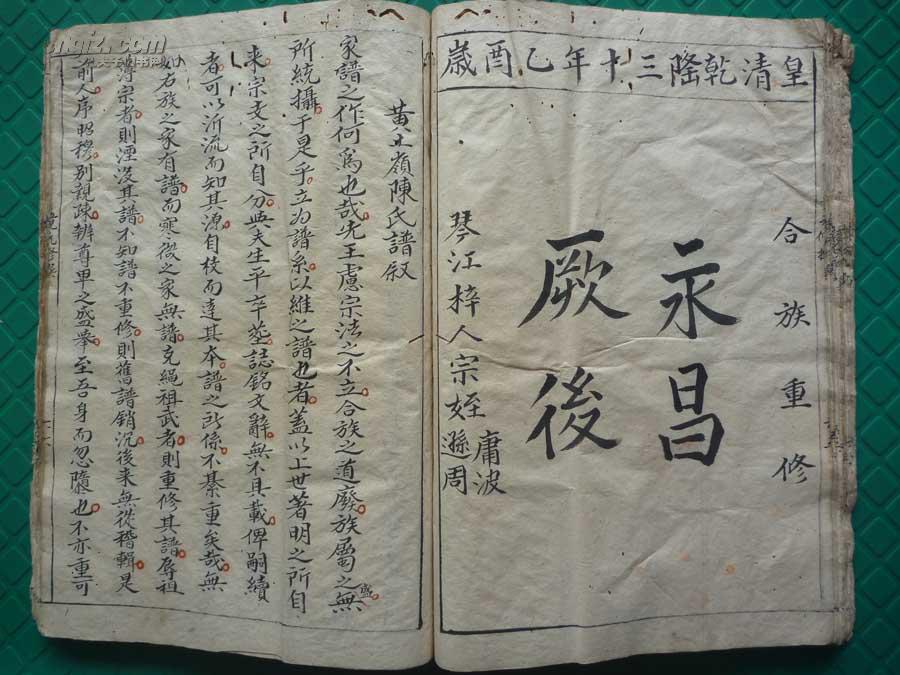 皇清乾隆三十年乙酉歲
合族重修
永昌
厥後
琴江梓人宗姪庸波遜周
黃上嶺陳氏譜叙
家譜之作何為也哉先王慮宗法之不立合族之道廢族屬之無
所統攝于是乎立為譜系以維之譜也者蓋以上世著明之所自
来宗支之所自分與夫生平卒塟誌銘文辭無不具載俾嗣續
者可以沂流而知其源自枝而達其本譜之所係不綦重矣哉無
如右族之家有譜而寒微之家無譜克繩祖武者則重修其譜辱祖
宗者則湮没其譜不知譜不重修則舊譜銷沉後来無從稽輯是
前人序昭穆别親疎辨尊卑之盛舉至吾身而忽隳也不亦重可
盛